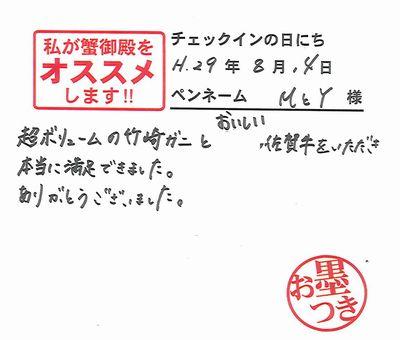 私が蟹御殿を
オススメ
します!!
チェックインの日にち
H.29年8月.4日
ペンネーム MとY 様
超ボリュームの竹崎ガニとおいしい佐賀牛をいただき
本当に満足できました。
ありがとうございました。
お墨つき